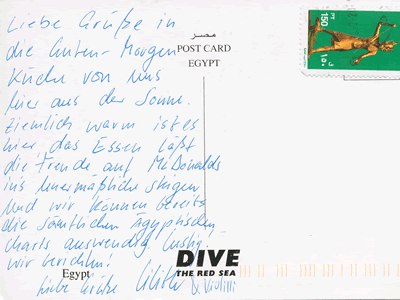 Liebe Grüße in
die Guten-Morgen
Küche von uns
hier aus der Sonne.
Ziemlich warm ist es
hier das Essen läßt
die Freude auf McDonalds
ins unermäßliche steigen
und wir können bereits
die sämtlichen Ägyptischen
charts auswendig. Lustig!
wir berichten!
Liebe Grüße &
مصر
POST CARD
EGYPT
150
١٥٠
DIVE
THE RED SEA
Egypt